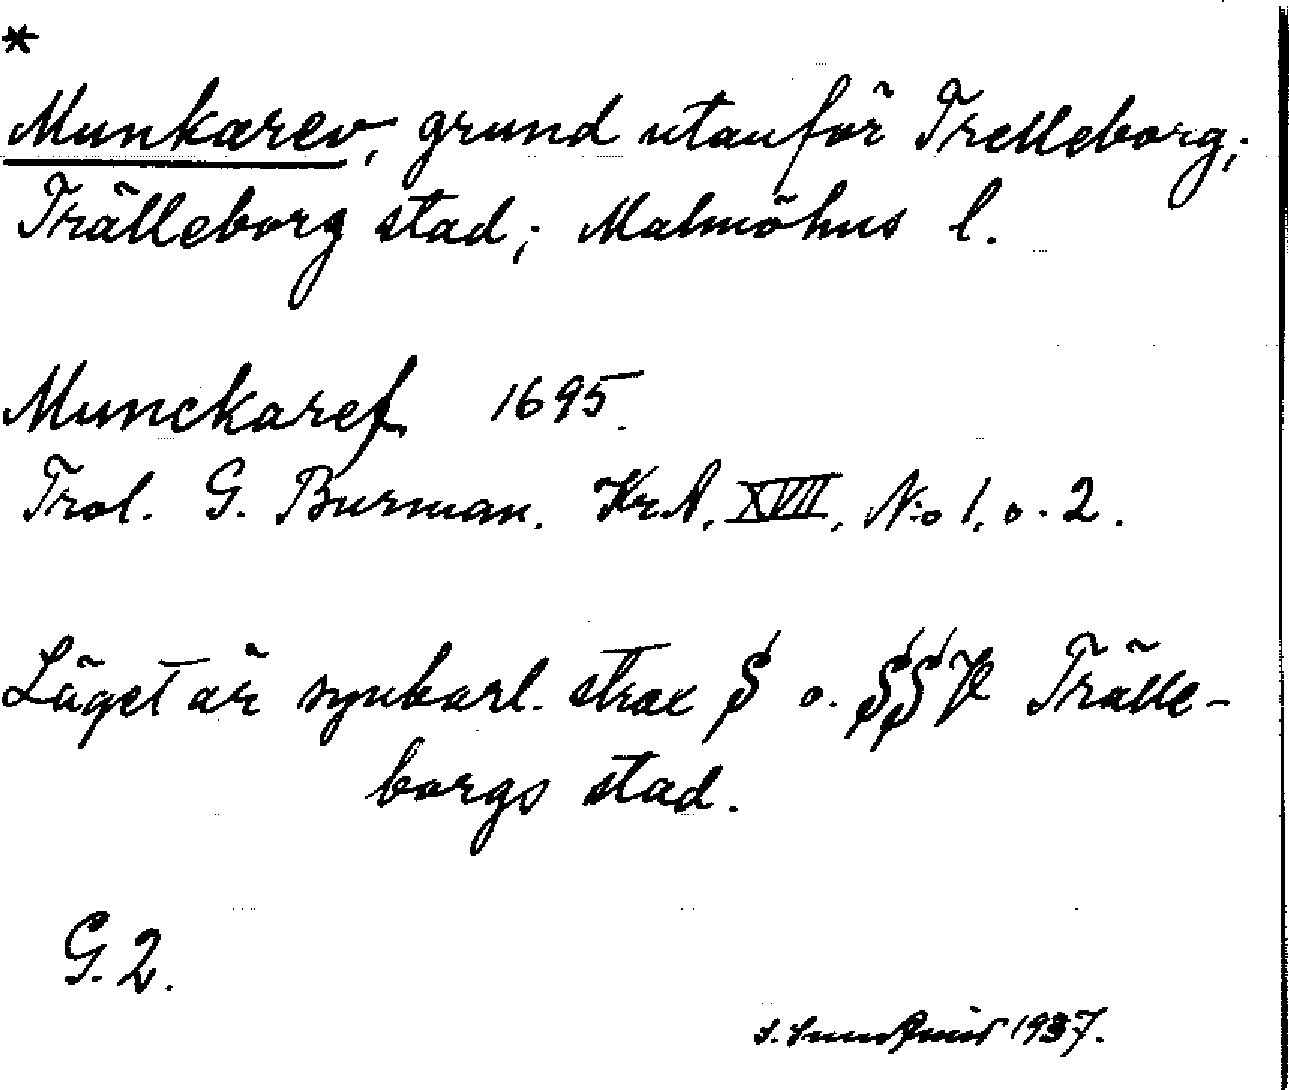 *
Munkarev, grund utanför Trelleborg;
Trälleborg stad; Malmöhus l.
Munckaref 1695.
Trol. G. Burman. Kr.A. XVII, N:o 1. o. 2.
Läget är synbarl. strax S o. SSV Trälle-
borgs stad.
G. 2.
S. 1937.